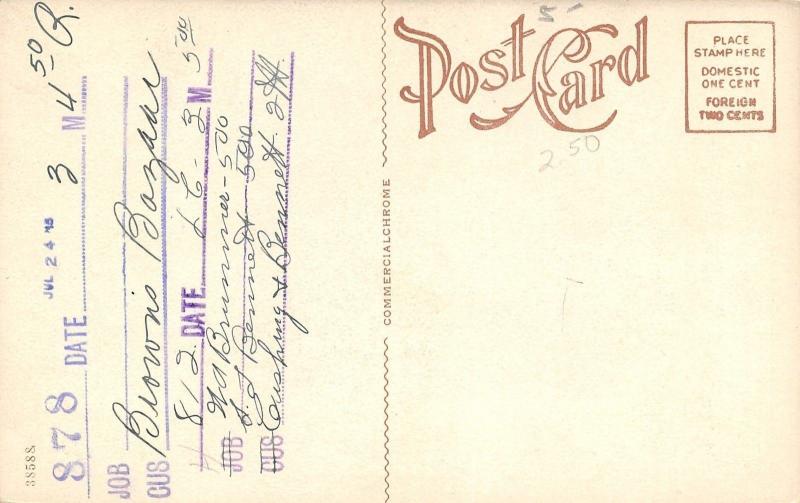 38588
878 DATE JUL 24 '15 3 M 4 50 R.
JOB
CUS Brown's Bazaar
812 DATE 6-3 M 500
JOB Brunner-500
Bennett 500
CUS Cushing & Bennett 2
COMMERCIALCHROME
Post Card
2.50
PLACE
STAMP HERE
DOMESTIC
ONE CENT
FOREIGN
TWO CENTS